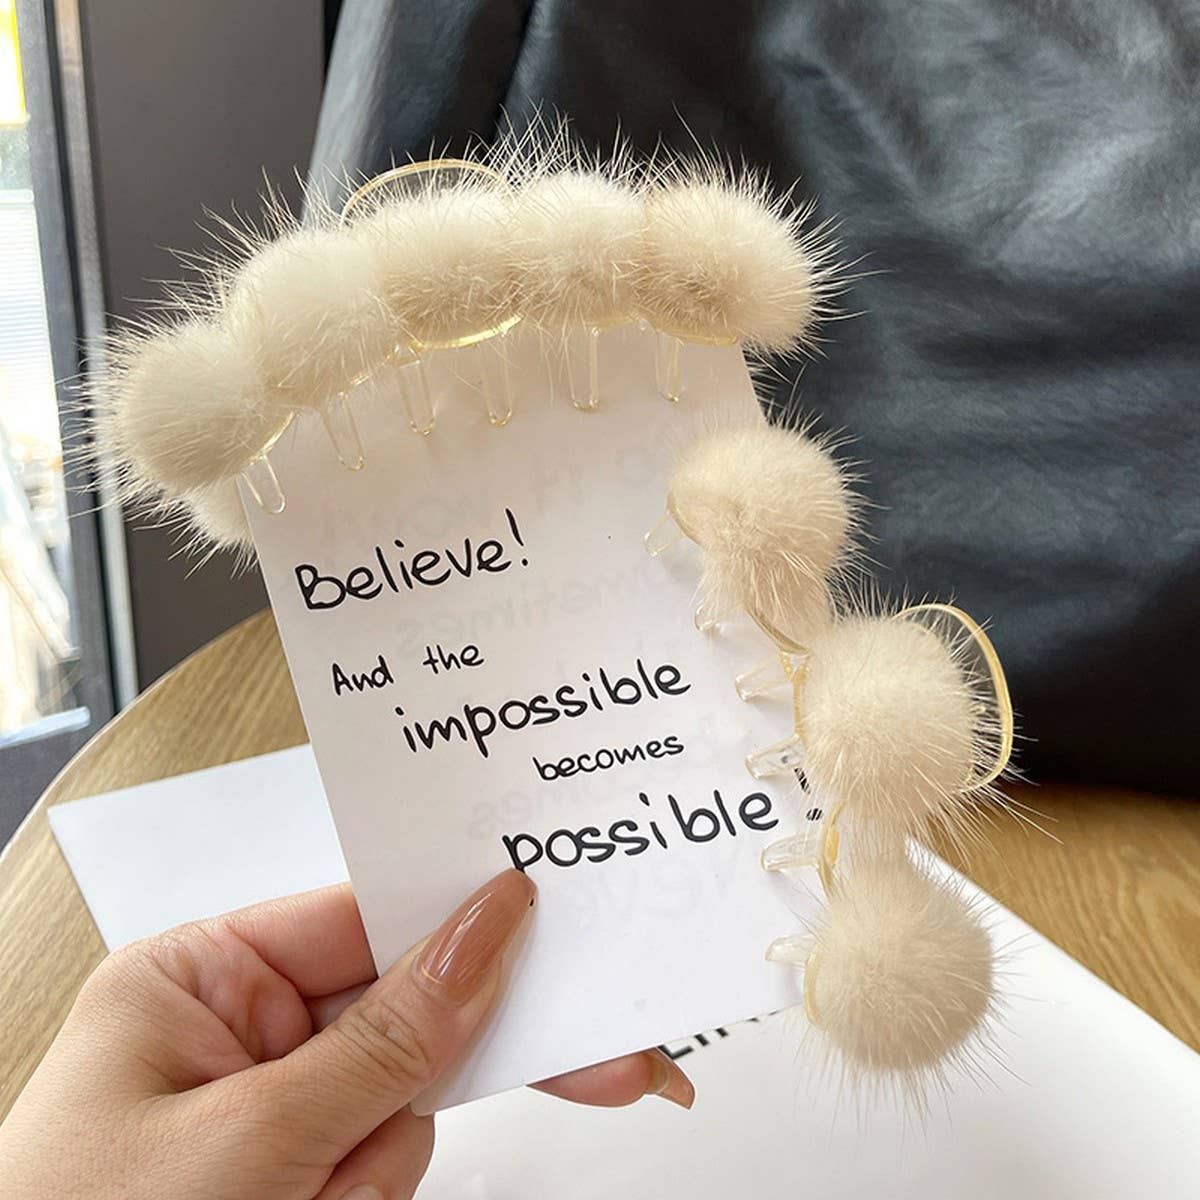 Believe!
And the
impossible
becomes
possible